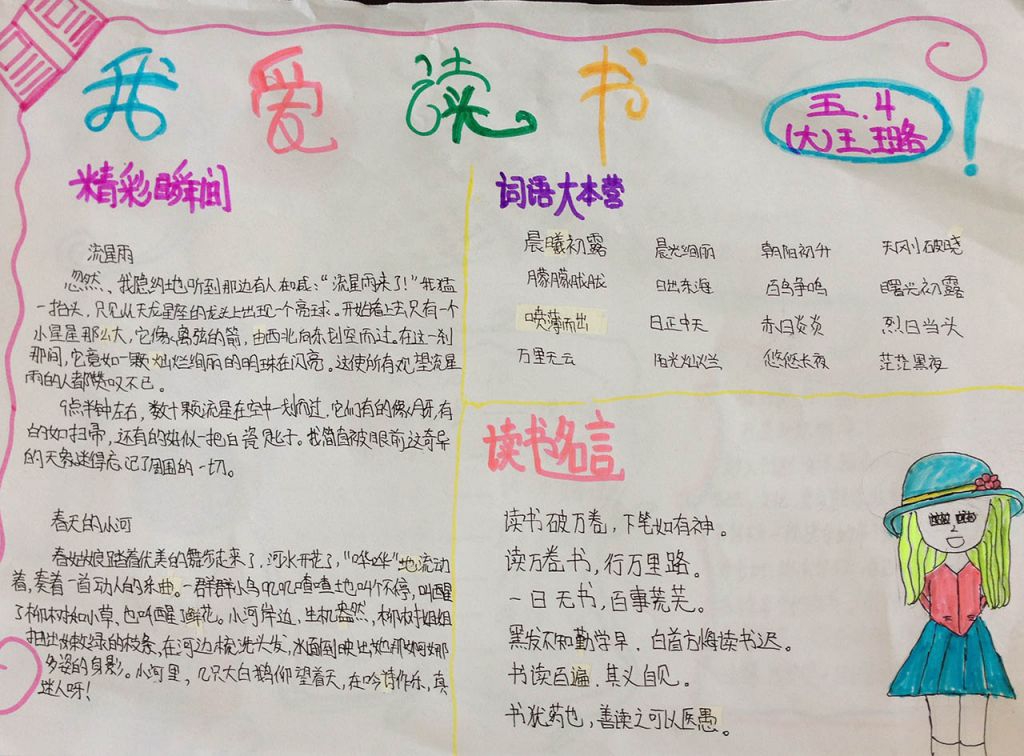 我爱读书!
五.4
(大)王珏路
精彩瞬间
流星雨
忽然、我隐约地听到那边有人如喊:“流星雨来了!”我猛
一抬头,只见从天龙星座的龙头上出现一个亮球。开始看上去只有一个
小星星那么大,它像离弦的箭,由西北向东划空而过。在这一刹
那间,它竟如一颗灿烂绚丽的明珠在闪亮。这使所有观望流星
雨的人都赞叹不已。
9点半钟左右,数十颗流星在空中一划而过,它们有的像月牙,有
的如扫帚,还有的好似一把白瓷匙。我简直被眼前这奇异
的天象迷得忘记了周围的一切。
春天的小河
春姑娘踏着优美的舞步走来了,河水开花了,“哗哗”地流动
着,奏着一首动人的乐曲。一群群小鸟叽叽喳喳地叫个不停,叫醒
了柳树和小草、也叫醒了鲜花。小河岸边,生机盎然,柳树姐姐
抽出嫩绿的枝条,在河边梳洗头发,水面倒映出她那婀娜
多姿的身影。小河里,几只大白鹅仰望着天,在吟诗作乐,真
迷人呀!
词语大本营
晨曦初露 晨光绚丽 朝阳初升 天刚破晓
朦朦胧胧 日出东海 百鸟争鸣 曙光初露
喷薄而出 日正中天 赤日炎炎 烈日当头
万里无云 阳光灿烂 悠悠长夜 茫茫黑夜
读书名言
读书破万卷,下笔如有神。
读万卷书,行万里路。
一日无书,百事荒芜。
黑发不知勤学早,白首方悔读书迟。
书读百遍,其义自见。
书犹药也,善读之可以医愚。